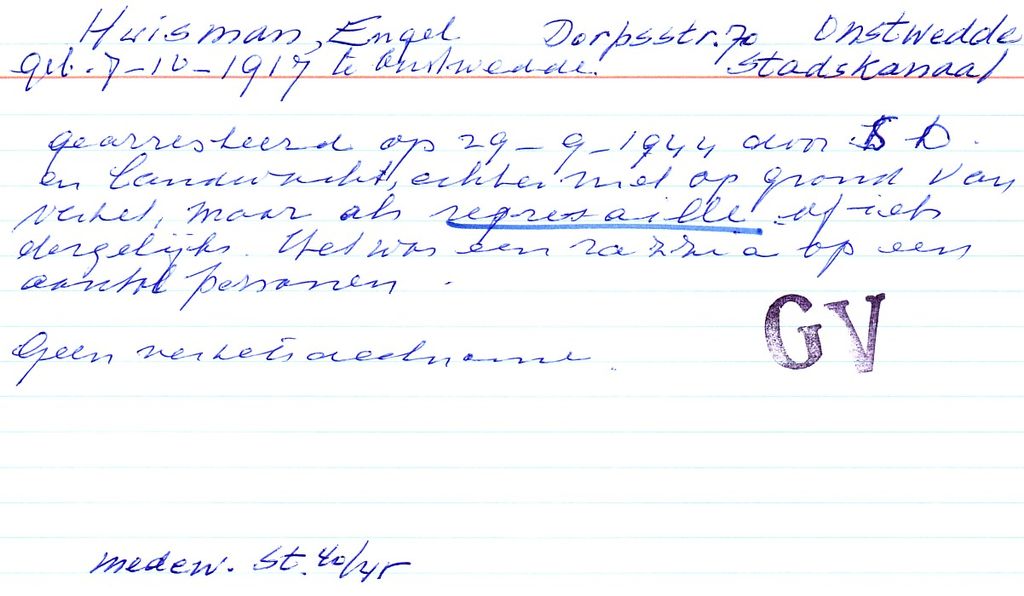 Huisman, Engel Dorpsstr. 70 Onstwedde
geb. 7-10-1917 te Onstwedde. Stadskanaal
gearresteerd op 29-9-1944 door S D.
en Landwacht, echter niet op grond van
verzet, maar als represaille of iets
dergelijks. Het was een razzia op een
aantal personen.
GV
Geen verzetsdeelname.
medew. St. 40/45